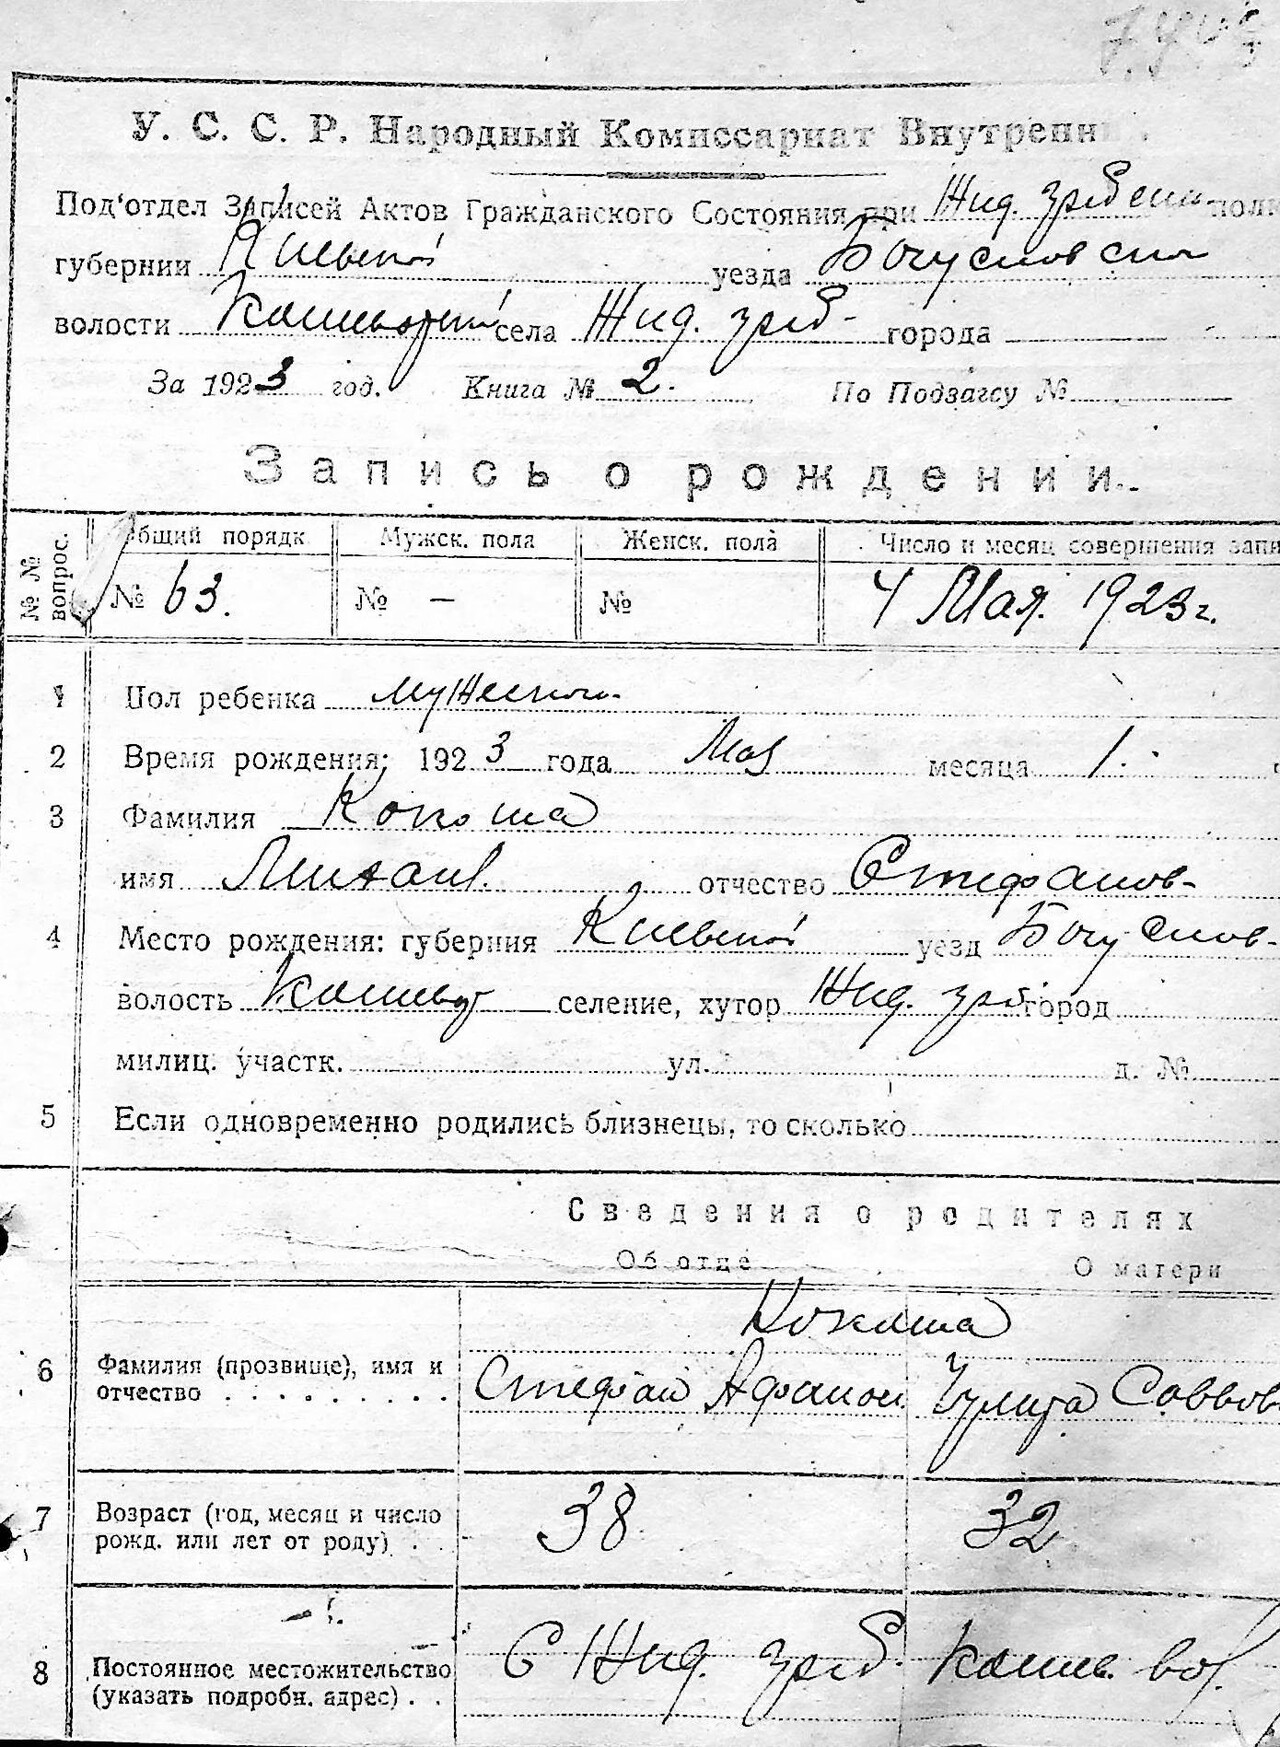 У. С. С. Р. Народный Комиссариат Внутренн
Под'отдел Записей Актов Гражданского Состояния при Жид. греб
губернии Киевской уезда Богуславск
волости села Жид. греб- города
За 1923 год. Книга № 2. По Подзагсу №
Запись о рождении.
№№ вопрос. Общий порядк Мужск. пола Женск. пола Число и месяц совершения запи
№ 63. № — № 4 Мая. 1923 г.
1 Пол ребенка мужской
2 Время рождения: 1923 года Мая месяца 1.
3 Фамилия Кокоша
имя Михаил. отчество Стефанов-
4 Место рождения: губерния Киевской уезд Богуслов-
волость селение, хутор Жид. греб. город
милиц. участк. ул. д. №
5 Если одновременно родились близнецы, то сколько
Сведения о родителях
Об отце О матери
Кокоша
6 Фамилия (прозвище), имя и
отчество Стефан Афанас. Улита Саввов
7 Возраст (год, месяц и число
рожд. или лет от роду) 38 32
8 Постоянное местожительство
(указать подробн. адрес) С Жид. греб. вол.